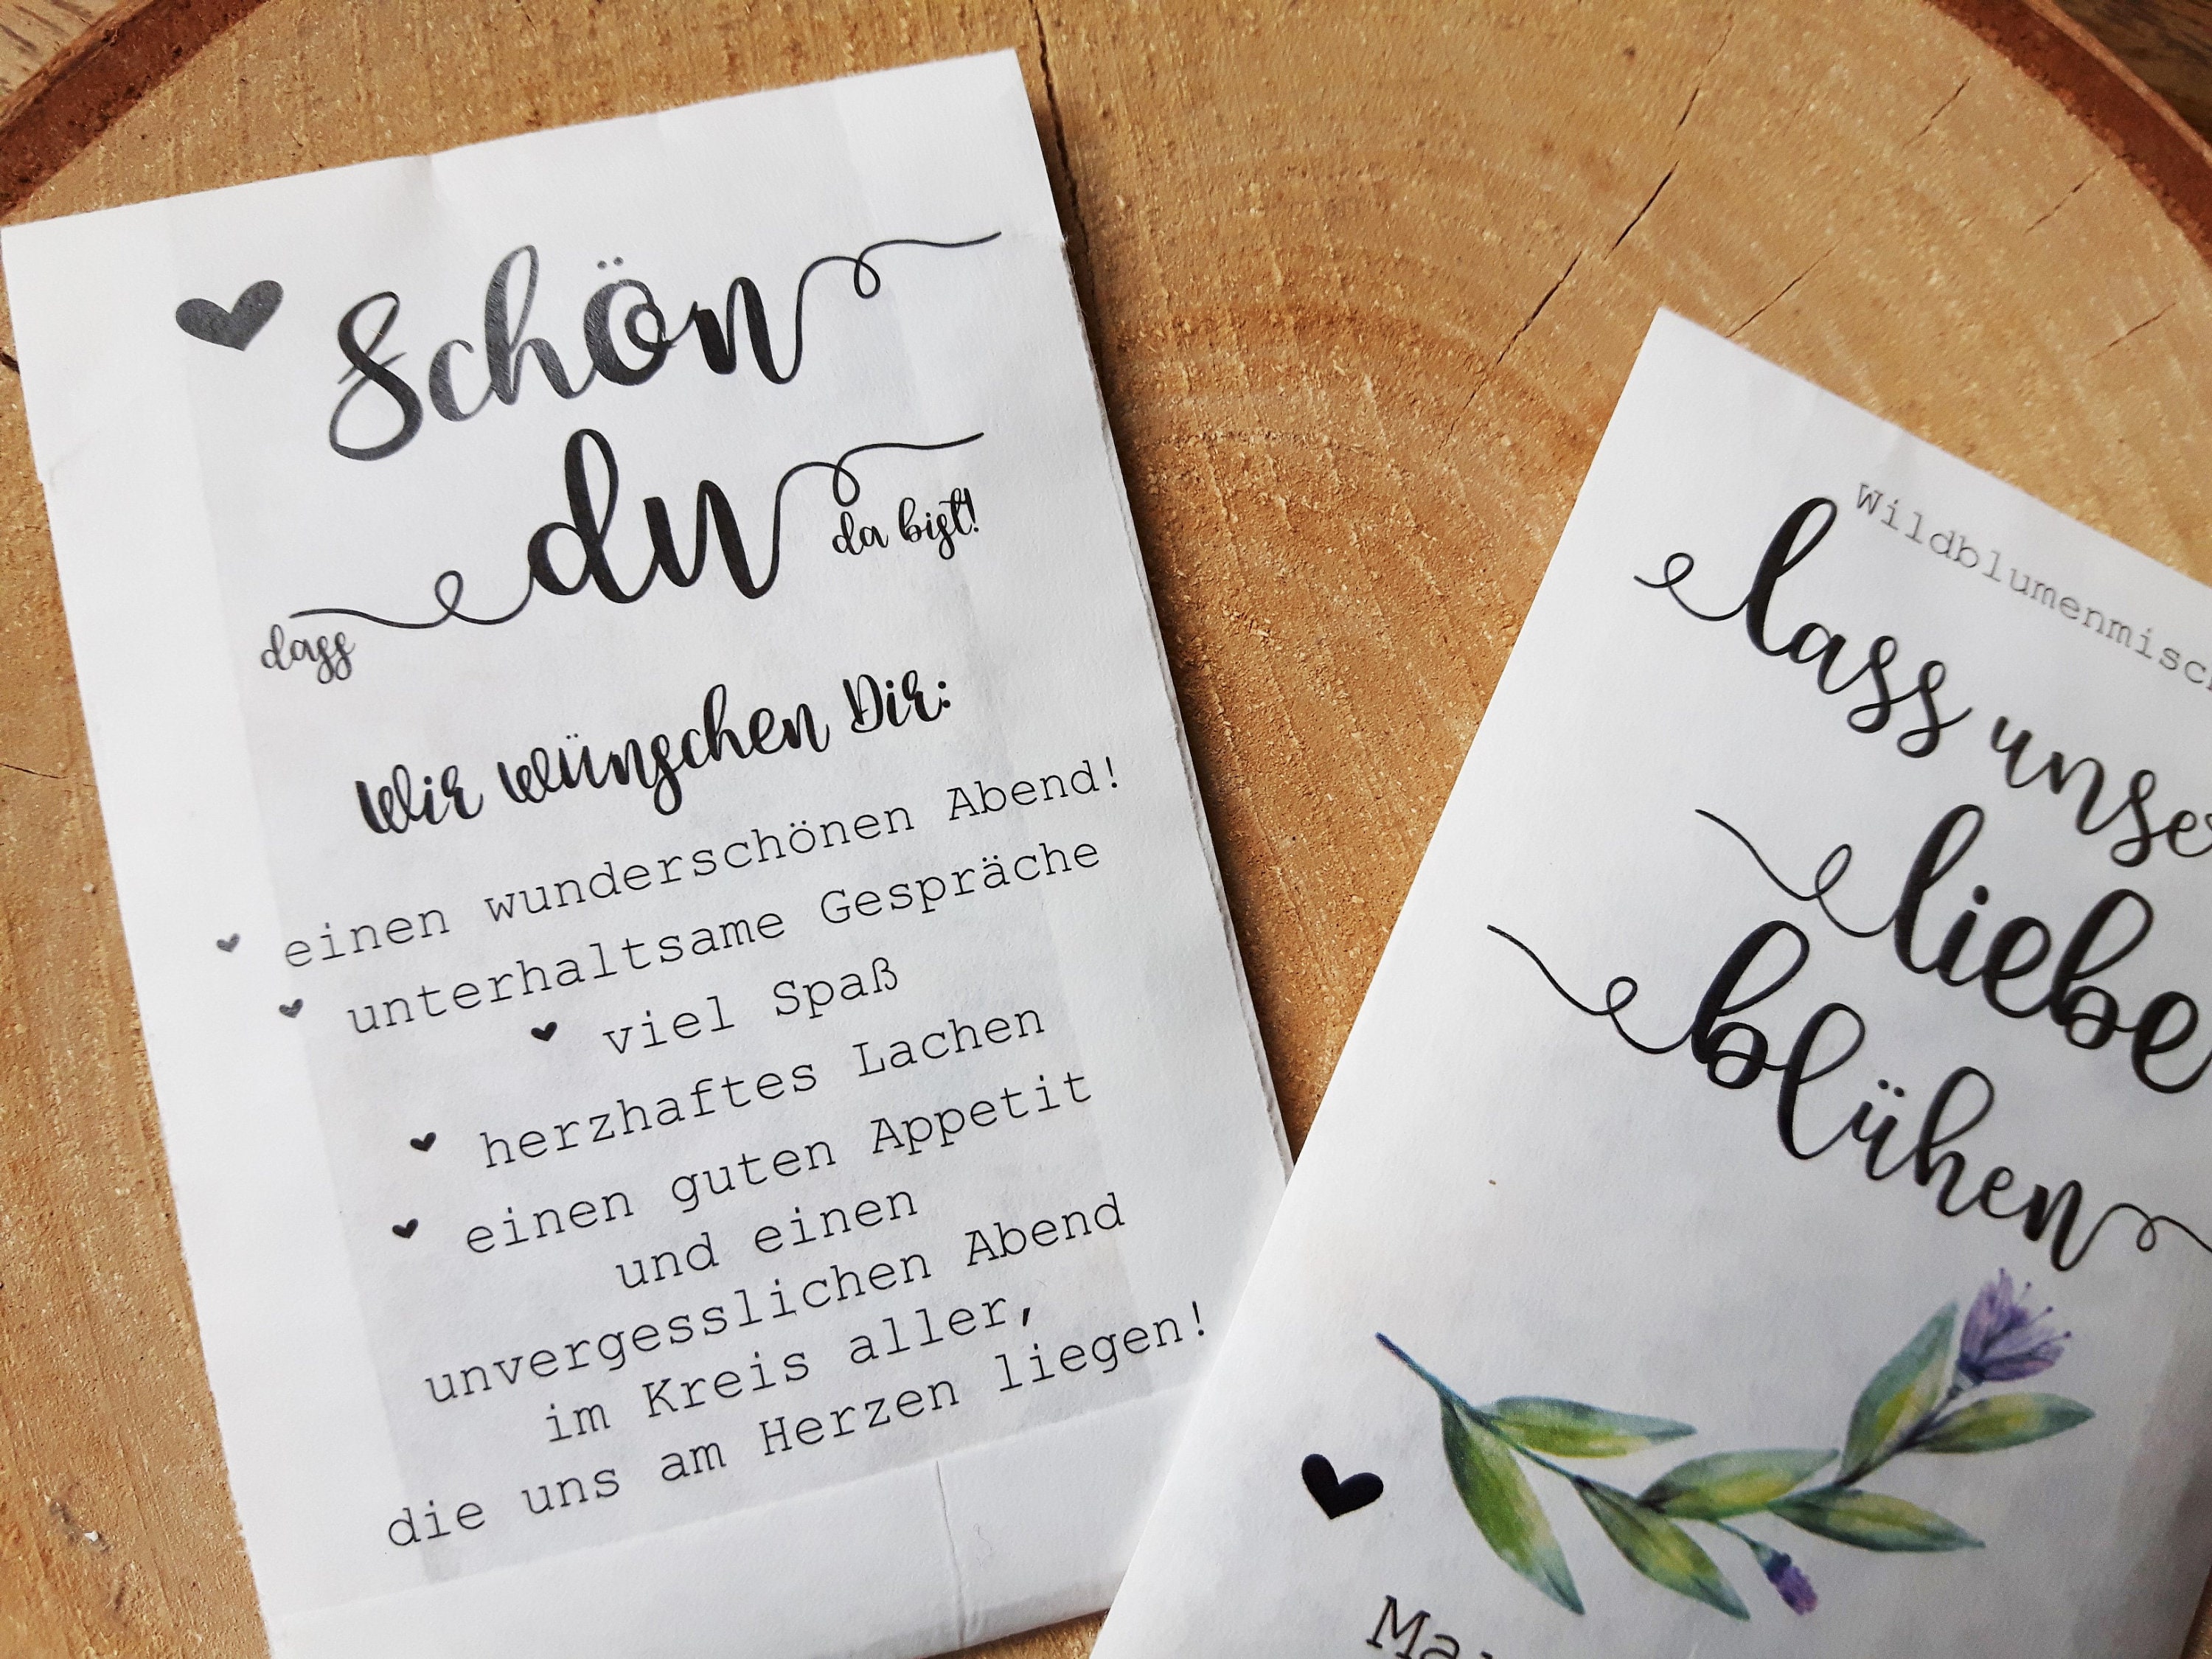 Schön
dass du da bist!
Wir wünschen Dir:
einen wunderschönen Abend!
unterhaltsame Gespräche
viel Spaß
herzhaftes Lachen
einen guten Appetit
und einen
unvergesslichen Abend
im Kreis aller,
die uns am Herzen liegen!
Wildblumenmisc
lass unse
liebe
blühen
Ma